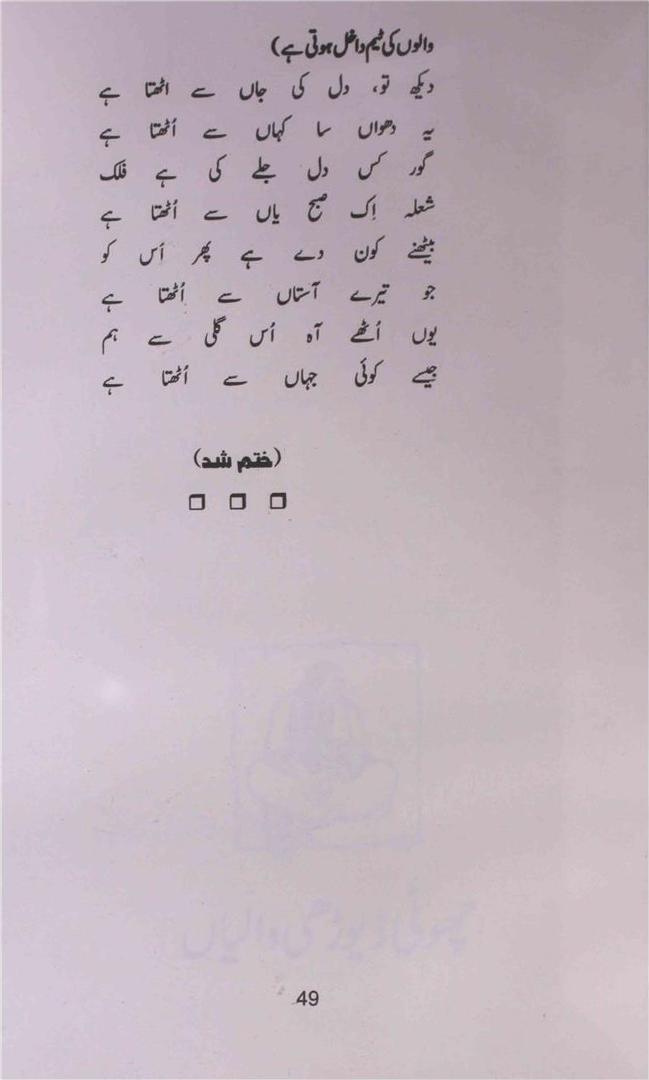 والوں کی ٹیم داخل ہوتی ہے)
دیکھ تو، دل کی جاں سے اٹھتا ہے
یہ دھواں سا کہاں سے اُٹھتا ہے
گور کس دل جلے کی ہے فلک
شعلہ اِک صبح یاں سے اُٹھتا ہے
بیٹھنے کون دے ہے پھر اُس کو
جو تیرے آستاں سے اُٹھتا ہے
یوں اُٹھے آہ اُس گلی سے ہم
جیسے کوئی جہاں سے اُٹھتا ہے
(ختم شد)
چھوٹی ڈیوڑھی والیاں
49